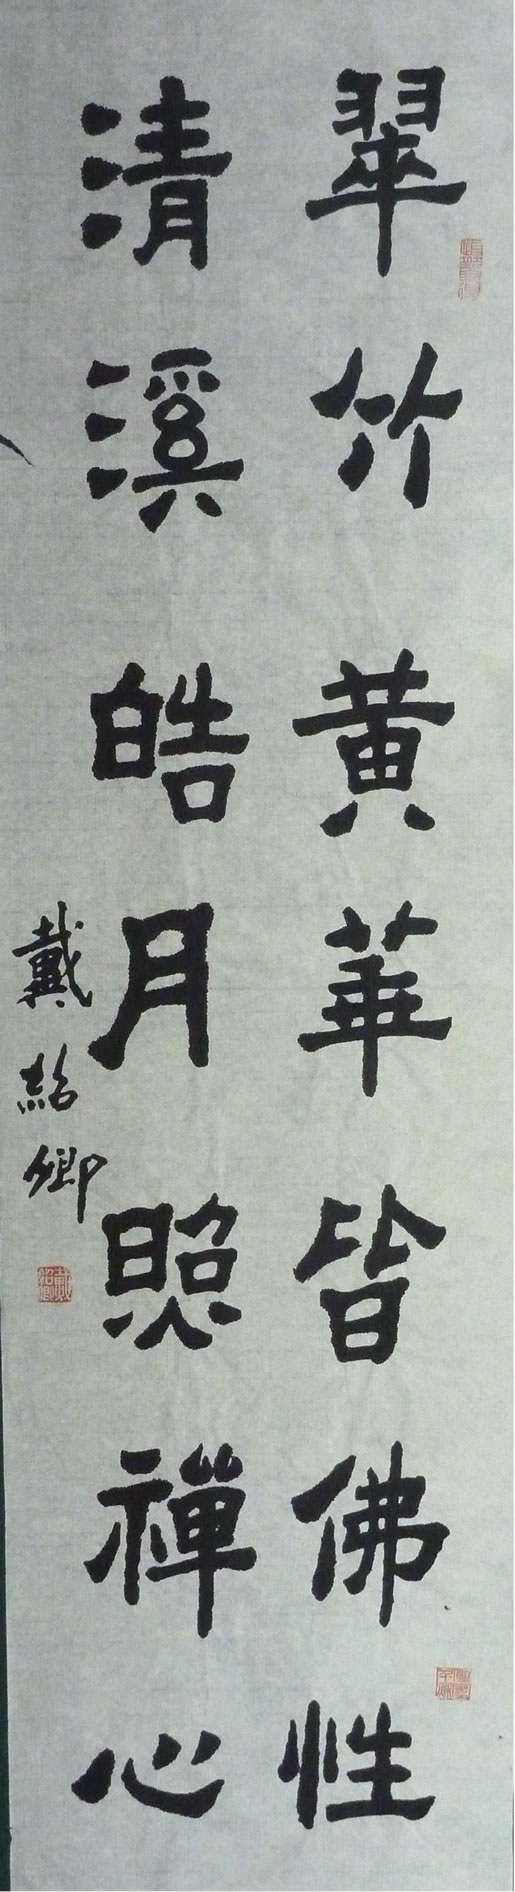 翠竹黄華皆佛性
清溪皓月照禪心
戴紹卿